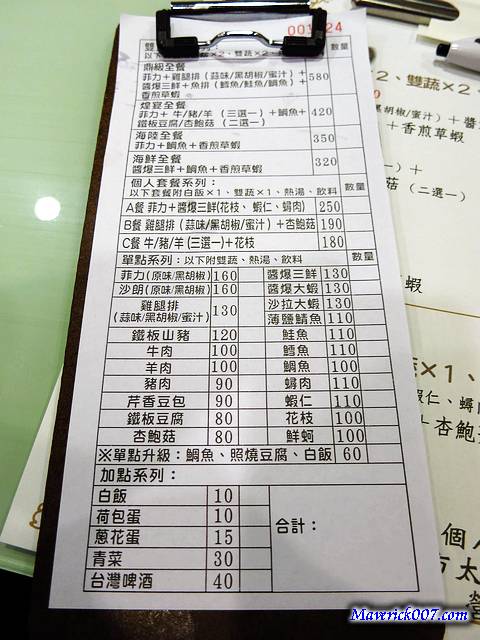 雙
數量
鼎級全餐
菲力+雞腿排(蒜味/黑胡椒/蜜汁)+ 580
醬爆三鮮+魚排(鱈魚/鮭魚/鯛魚)+
香煎草蝦
煌宴全餐
菲力+ 牛/豬/羊 (三選一)+鯛魚+ 420
鐵板豆腐/杏鮑菇 (二選一)
海陸全餐 350
菲力+鯛魚+香煎草蝦
海鮮全餐 320
醬爆三鮮+鯛魚+香煎草蝦
個人套餐系列: 數量
以下套餐附白飯×1、雙蔬×1、熱湯、飲料
A餐 菲力+醬爆三鮮(花枝、蝦仁、蟳肉) 250
B餐 雞腿排(蒜味/黑胡椒/蜜汁)+杏鮑菇 190
C餐 牛/豬/羊(三選一)+花枝 180
單點系列:以下附雙蔬、熱湯、飲料 數量
菲力(原味/黑胡椒) 160 醬爆三鮮 130
沙朗(原味/黑胡椒) 160 醬爆大蝦 130
雞腿排 (蒜味/黑胡椒/蜜汁) 130 沙拉大蝦 130
薄鹽鯖魚 110
鐵板山豬 120 鮭魚 110
牛肉 100 鱈魚 110
羊肉 100 鯛魚 100
豬肉 90 蟳肉 110
芹香豆包 90 蝦仁 110
鐵板豆腐 80 花枝 100
杏鮑菇 80 鮮蚵 100
※單點升級:鯛魚、照燒豆腐、白飯 60
加點系列:
白飯 10
荷包蛋 10
蔥花蛋 15
青菜 30
台灣啤酒 40
合計:
×2、雙蔬×2、
胡椒/蜜汁)+醬
+香煎草蝦
(二選一)
蝦
蔬×1、
蝦仁、蟳
+杏鮑
個人
Maverick007.com